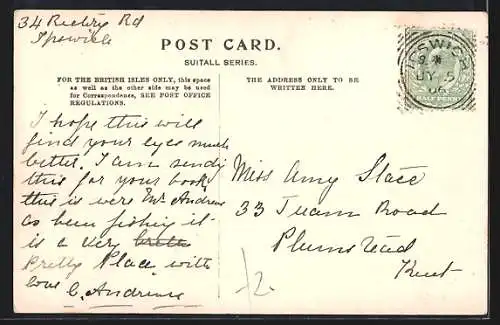 34 Rectory Rd
Ipswich
POST CARD.
SUITALL SERIES.
FOR THE BRITISH ISLES ONLY, this space
as well as the other side may be used
for Correspondence, SEE POST OFFICE
REGULATIONS.
THE ADDRESS ONLY TO BE
WRITTEN HERE.
IPSWICH
JY 5
06
HALFPENNY
I hope this will
find your eyes much
better. I am sendig
this for your book
this is were Mr Andrews
as been fishing it
is a very
Pretty Place with
love C. Andrews
Miss Amy Stace
33 Tuam Road
Plumstead
Kent
/2